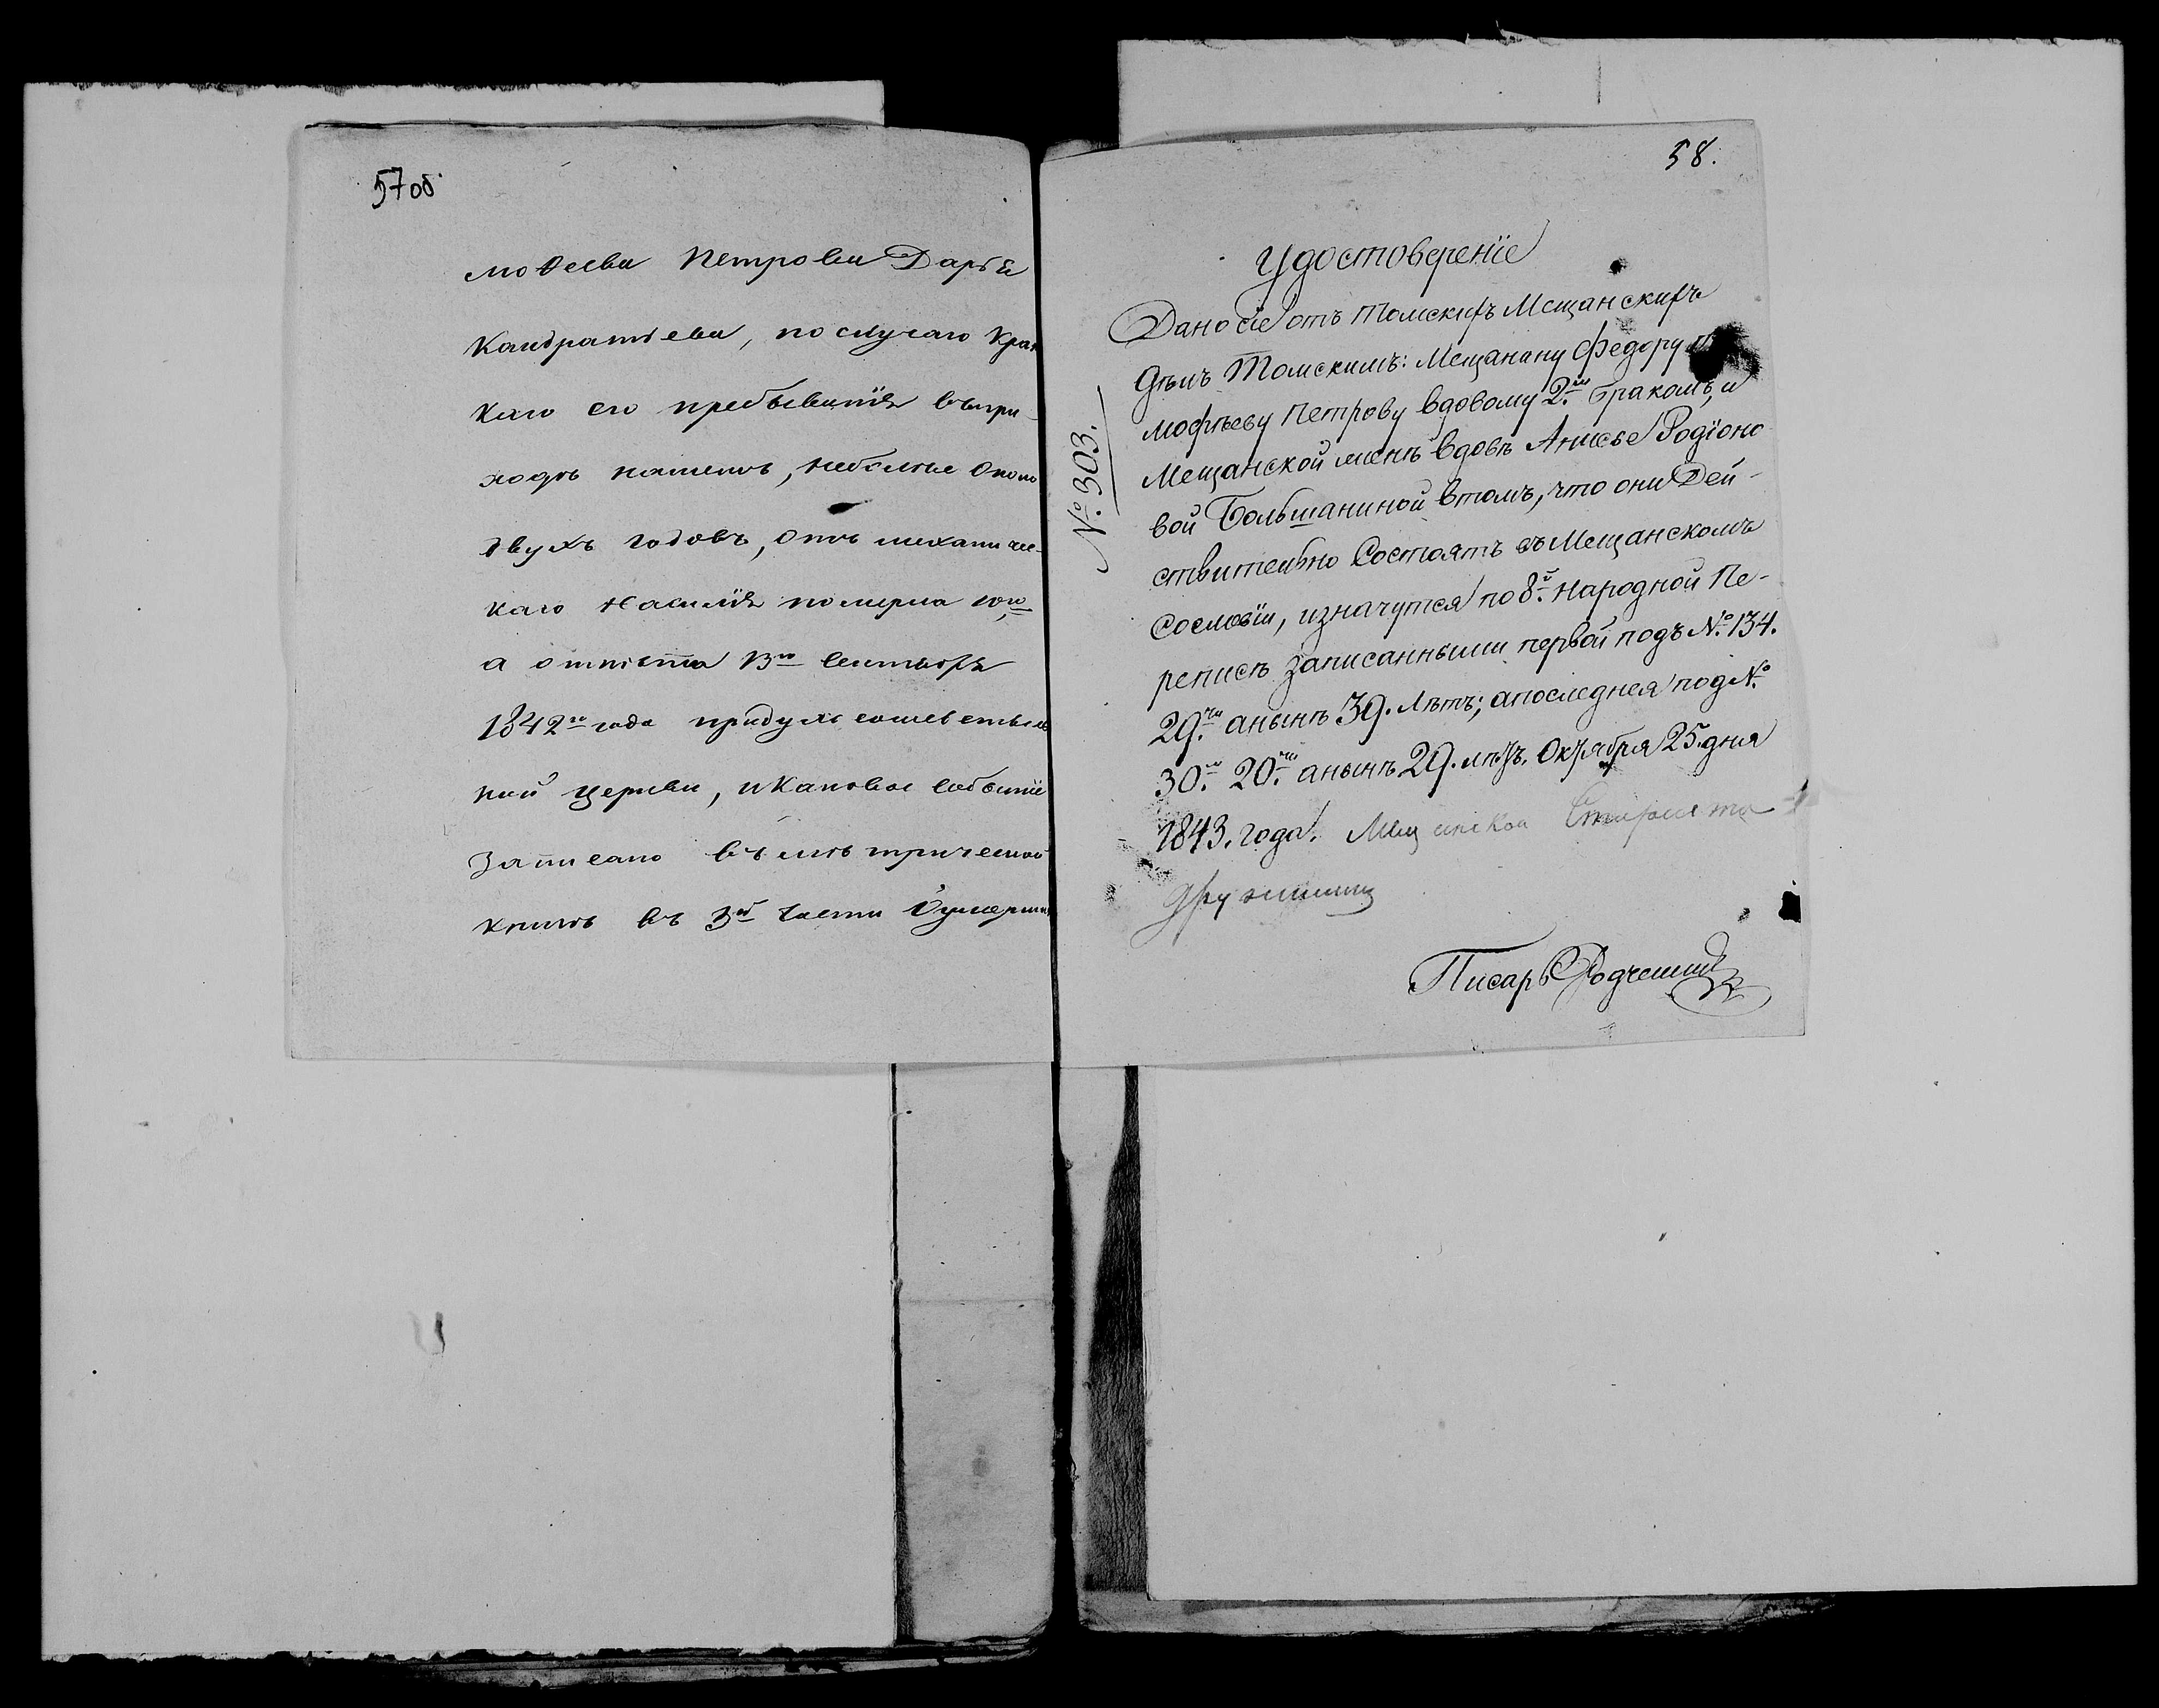 57об.
мофеева Петрова Дарья
Кандратьева, по случаю крат
каго его пребыванія въ при-
ходѣ нашемъ, неболѣе около
двухъ годовъ, отъ механичес-
каго насилія померла 10го,
а отпѣта 13го Сентября
1842го года придухосошественс
ной церкви, и каковое событіе
записано въ метрической
книгѣ въ 3ей части Оумерших
58.
Удостоверенїе
№303.
Дано сїе отъ Томскихъ Мещанскихъ
дѣлъ Томскимъ: Мещанину Федору
мофѣеву Петрову вдовому 2мъ бракомъ, и
Мещанской женѣ вдовѣ Анисье Родїоно
вой Большаниной втомъ, что они Дей-
ствительно Состоятъ въ Мещанскомъ
Сословїи, изначутся по 8й Народной Пе-
реписѣ записанными первой подъ №134.
29ти анынѣ 39. лѣтъ; апоследнея под №
30м 20ти анынѣ 29. лѣтъ. Октября 25. дня
1843. года. Мещанской Староста
Писарь Родчешин